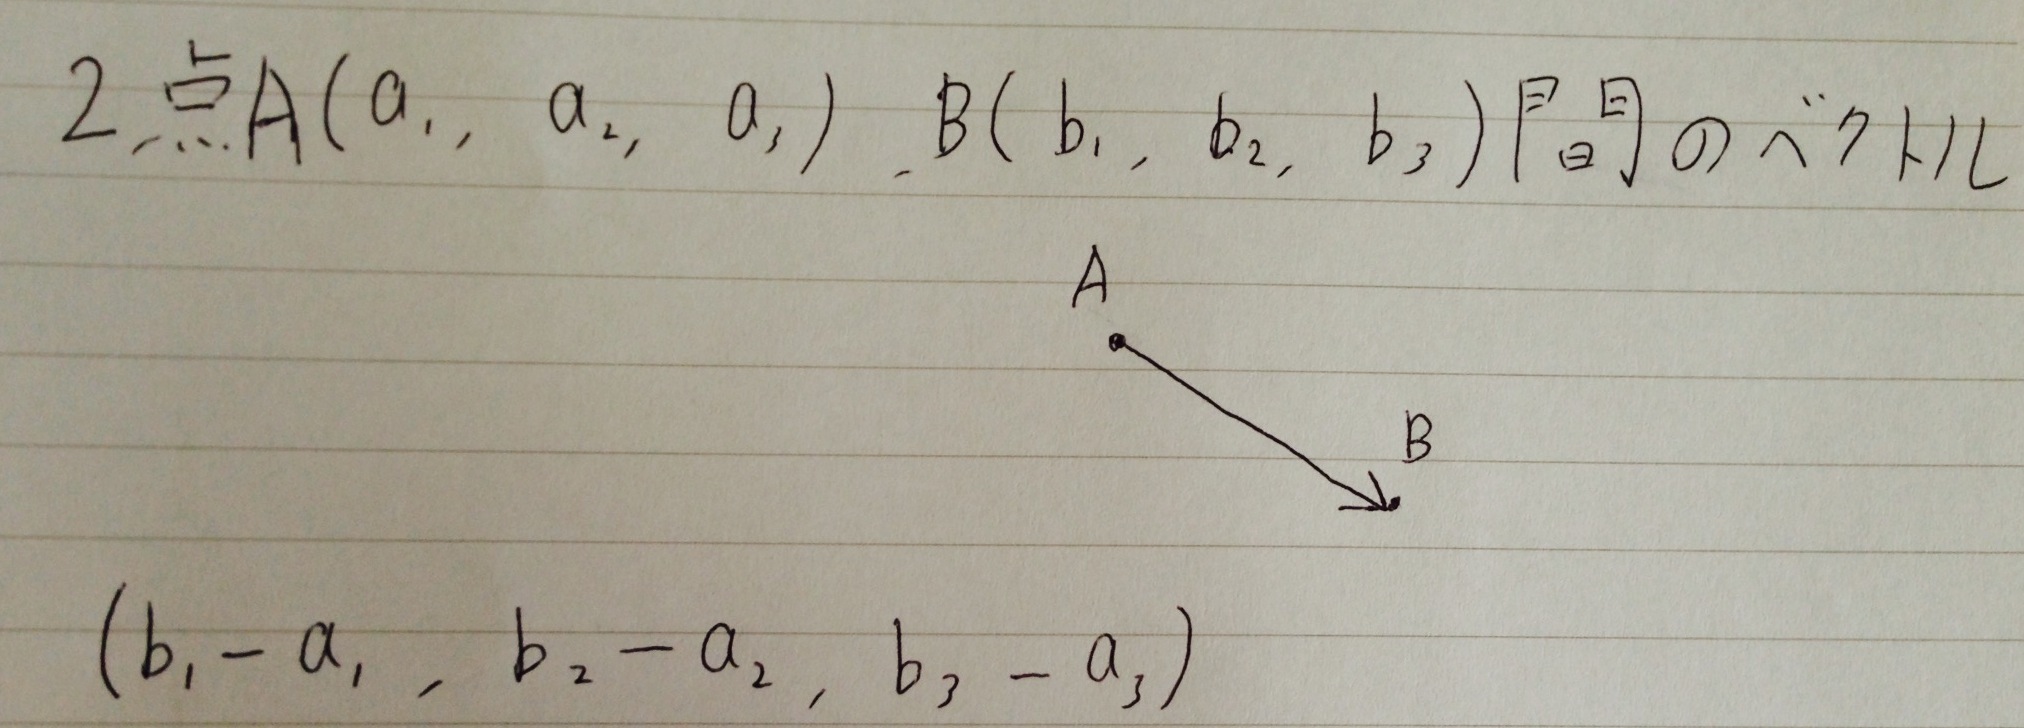 2点A(a₁, a₂, a₃)、B(b₁, b₂, b₃)間のベクトル
A
B
(b₁-a₁, b₂-a₂, b₃-a₃)